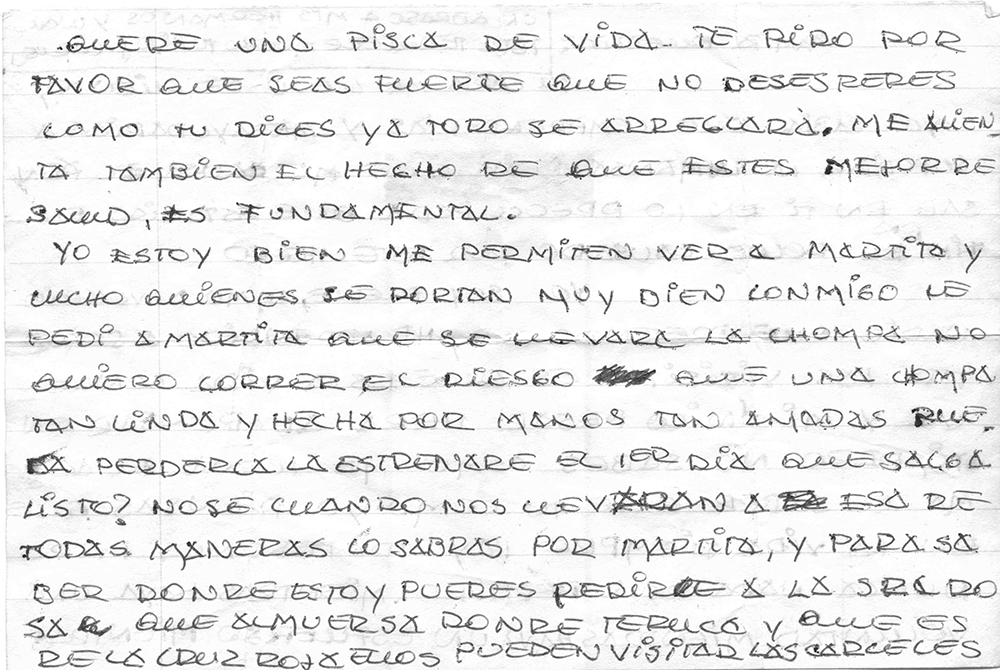 .QUERE UNA PISCA DE VIDA. TE PIDO POR
FAVOR QUE SEAS FUERTE QUE NO DESESPERES
COMO TU DICES YA TODO SE ARREGLARÁ. ME ALIEN_
TA TAMBIEN EL HECHO DE QUE ESTES MEJOR DE
SALUD, ES FUNDAMENTAL.
YO ESTOY BIEN ME PERMITEN VER A MARTITA Y
LUCHO QUIENES SE PORTAN MUY BIEN CONMIGO LE
PEDI A MARTITA QUE SE LLEVARA LA CHOMPA NO
QUIERO CORRER EL RIESGO QUE UNA CHOMPA
TAN LINDA Y HECHA POR MANOS TAN AMADAS PUE.
DA PERDERLA LA ESTRENARE EL 1ER DIA QUE SALGA
LISTO? NO SE CUANDO NOS LLEVARAN A ESA DE
TODAS MANERAS LO SABRAS POR MARTITA, Y PARA SA
BER DONDE ESTOY PUEDES PEDIRLE A LA SRA DO
SA QUE ALMUERSA DONDE TERUCA Y QUE ES
DE LA CRUZ ROJA ELLOS PUEDEN VISITAR LAS CARCELES